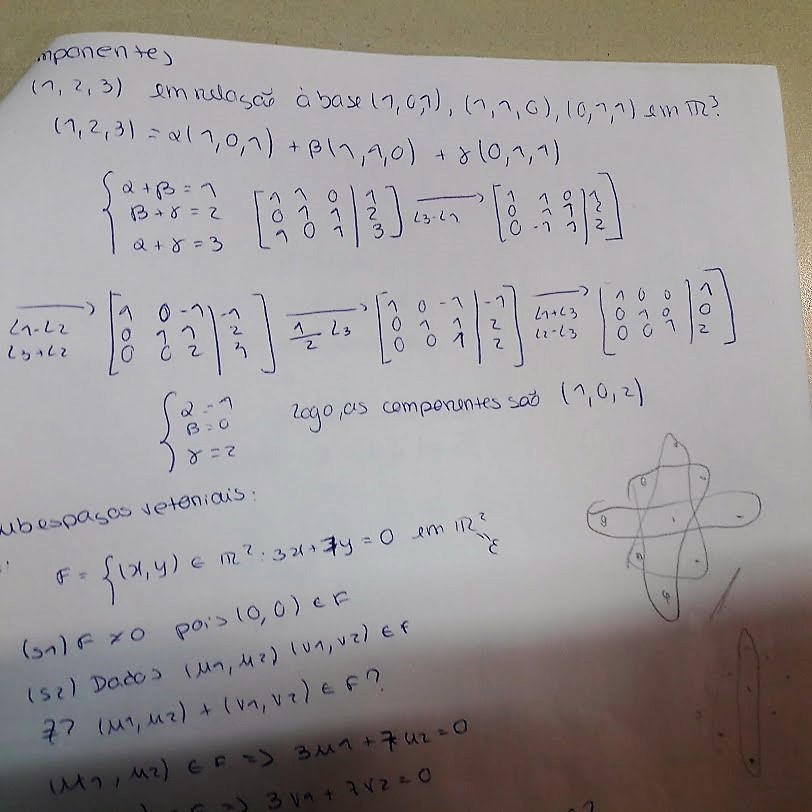 mponentes
(1, 2, 3) em relação à base (1,0,1), (1,1,0), (0,1,1) em ℝ³
(1,2,3) = α(1,0,1) + β(1,1,0) + γ(0,1,1)
{ α+β = 1
β+γ = 2
α+γ = 3
[1 1 0 | 1
0 1 1 | 2
1 0 1 | 3] L3-L1 → [1 1 0 | 1
0 1 1 | 2
0 -1 1 | 2]
L1-L2 L3+L2 → [1 0 -1 | -1
0 1 1 | 2
0 0 2 | 4] 1/2 L3 → [1 0 -1 | -1
0 1 1 | 2
0 0 1 | 2] L1+L3 L2-L3 → [1 0 0 | 1
0 1 0 | 0
0 0 1 | 2]
{ α = 1
β = 0
γ = 2
Logo, as componentes são (1,0,2)
ubespaços vetoriais:
F = {(x,y) ∈ ℝ² : 3x+7y = 0 em ℝ²
(S1) F ≠ 0 pois (0,0) ∈ F
(S2) Dados (u1,u2) (v1,v2) ∈ F
(u1,u2) + (v1,v2) ∈ F?
(u1,u2) ∈ F => 3u1+7u2 = 0
∈ F => 3v1+7v2 = 0